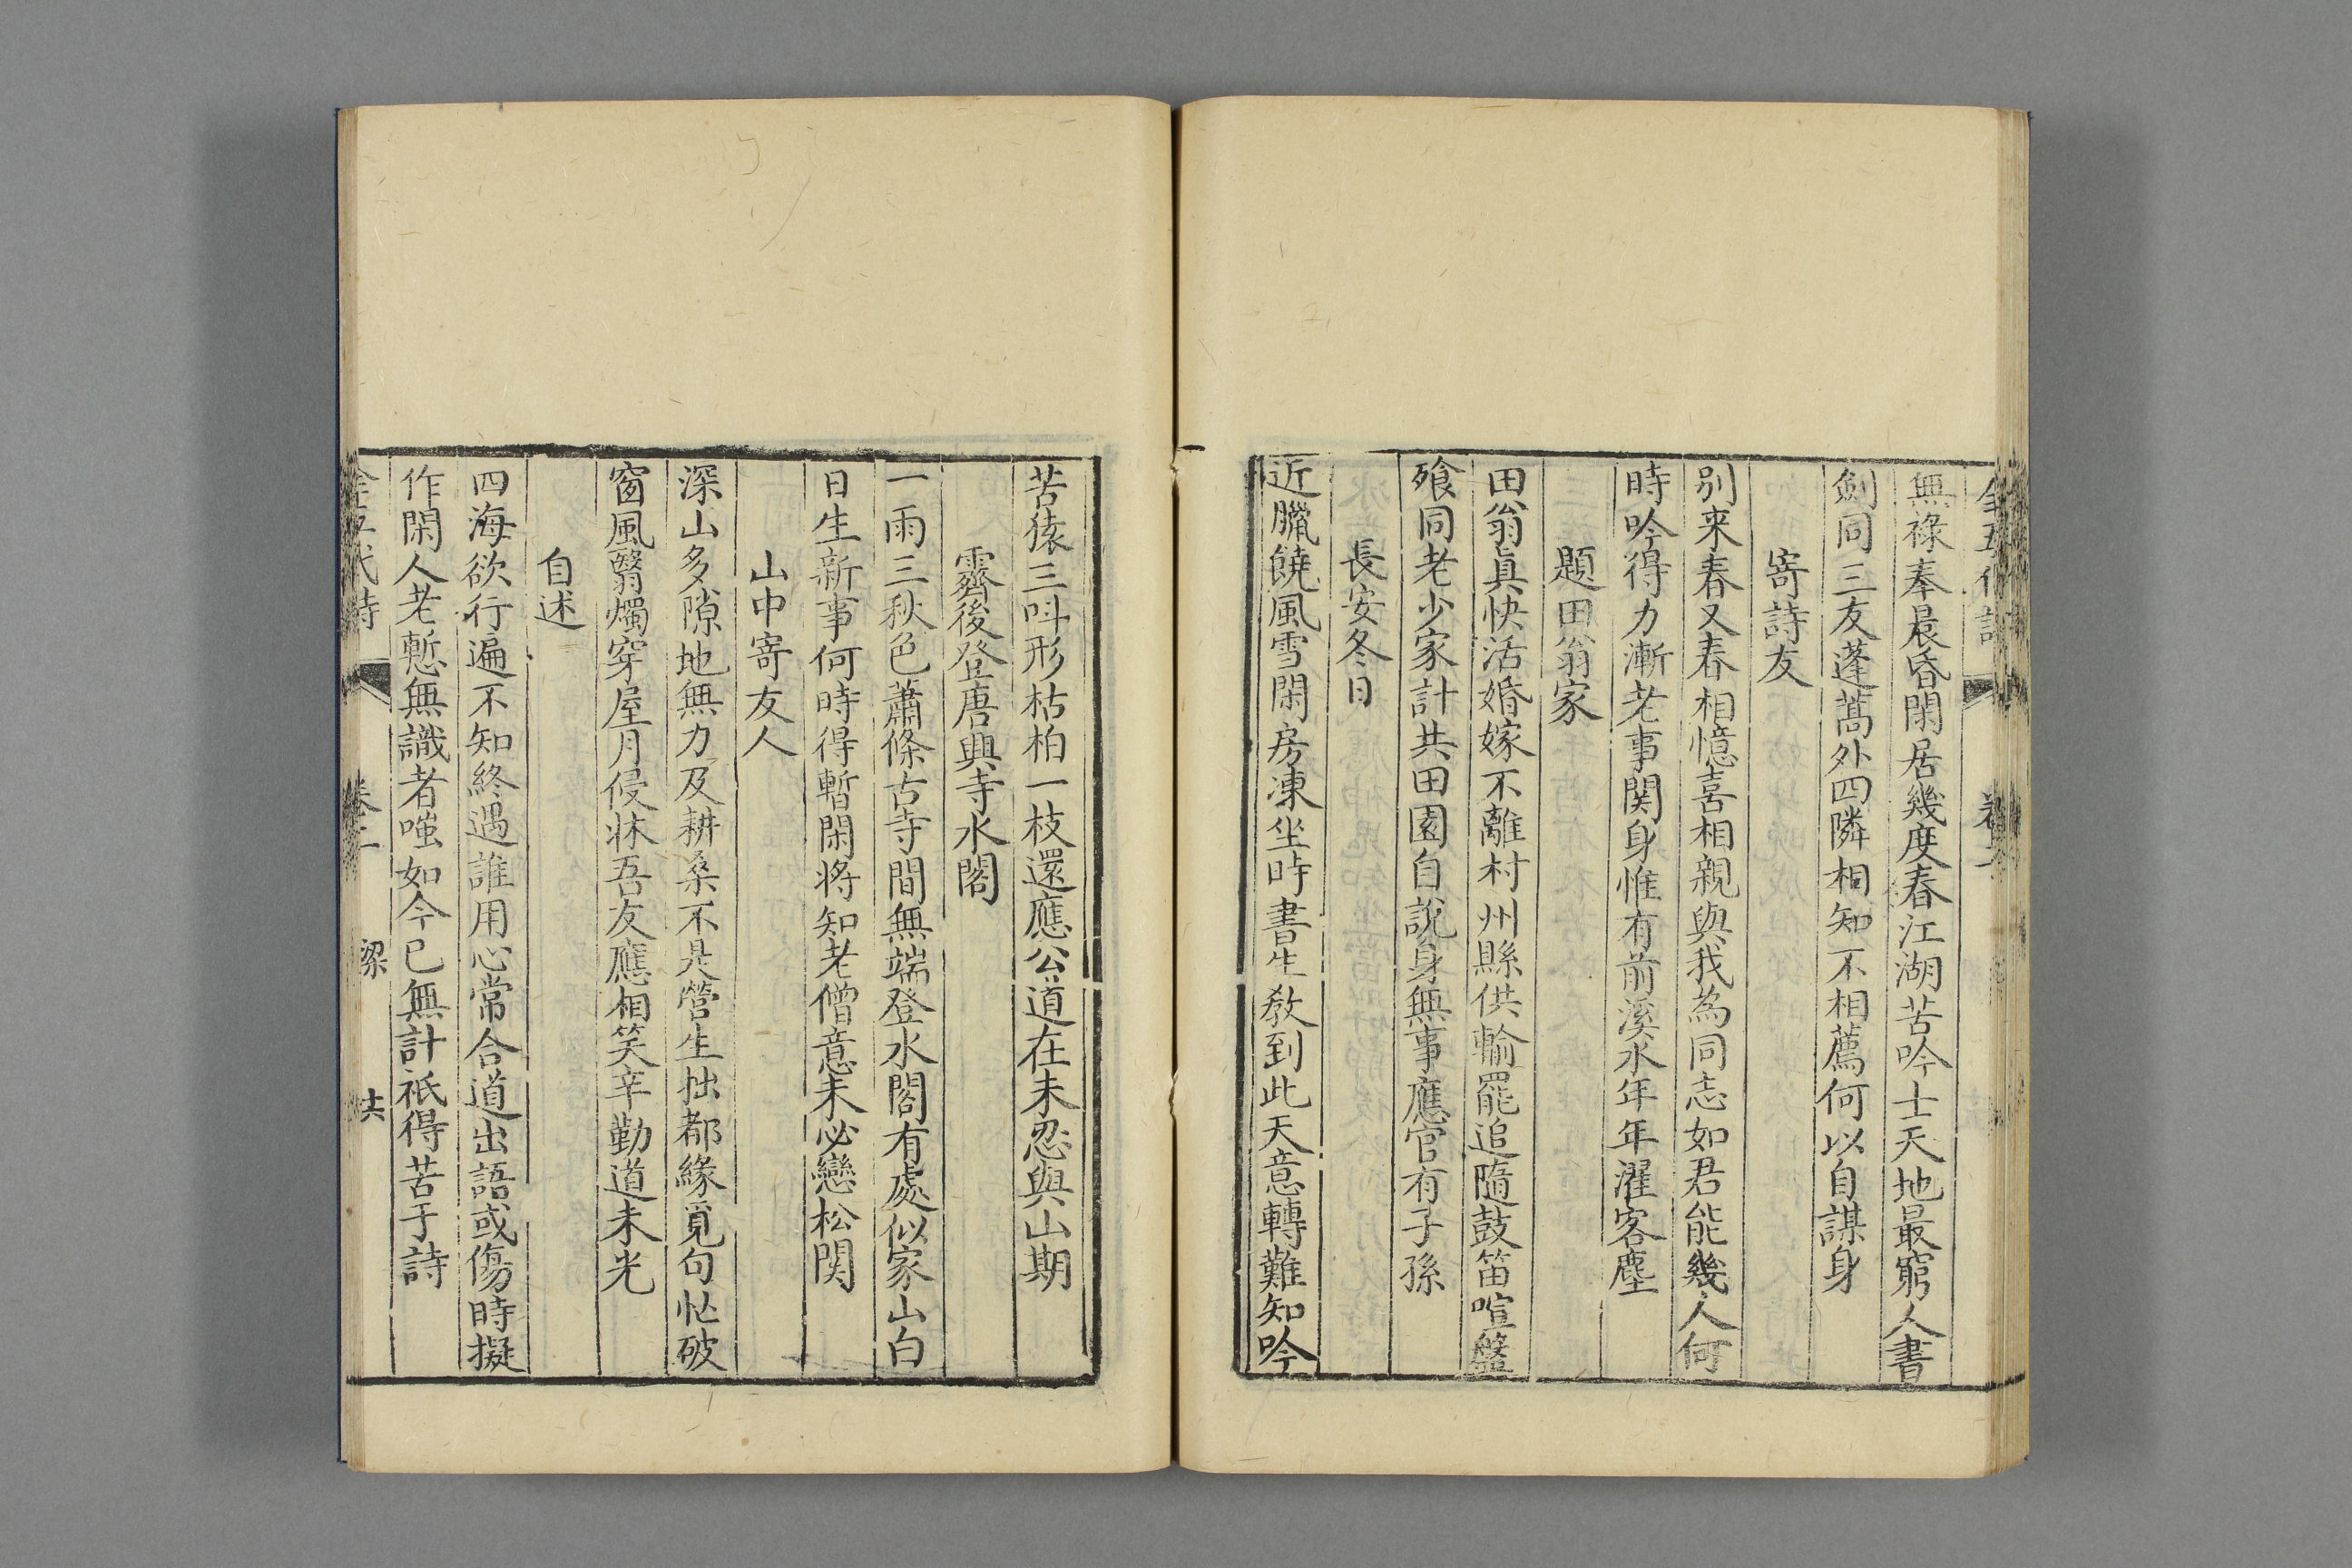 無祿奉晨昏閑居幾度春江湖苦吟士天地最窮人書
劍同三友蓬蒿外四隣相知不相薦何以自謀身
寄詩友
别来春又春相憶喜相親與我為同志如君能幾人何
時吟得力漸老事関身惟有前溪水年年濯客塵
題田翁家
田翁真快活婚嫁不離村州縣供輸罷追隨鼓笛喧盤
飱同老少家計共田園自說身無事應官有子孫
長安冬日
近臘饒風雪閑房凍坐時書生教到此天意轉難知吟
苦猿三呌形枯柏一枝還應公道在未忍與山期
霽後登唐興寺水閣
一雨三秋色蕭條古寺間無端登水閣有處似家山白
日生新事何時得暫閑将知老僧意未必戀松関
山中寄友人
深山多隙地無力及耕桑不是營生拙都緣覓句忙破
窗風翳燭穿屋月侵牀吾友應相笑辛勤道未光
自述
四海欲行遍不知終遇誰用心常合道出語或傷時擬
作閑人老慙無識者嗤如今已無計祇得苦于詩
全五代詩 卷二 梁 共